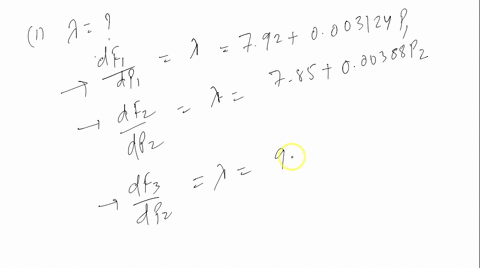 (1) λ = ?
→ dF1/dP1 = λ = 7.92 + 0.003124 P1
→ dF2/dP2 = λ = 7.85 + 0.00388 P2
→ dF3/dP2 = λ = 9.